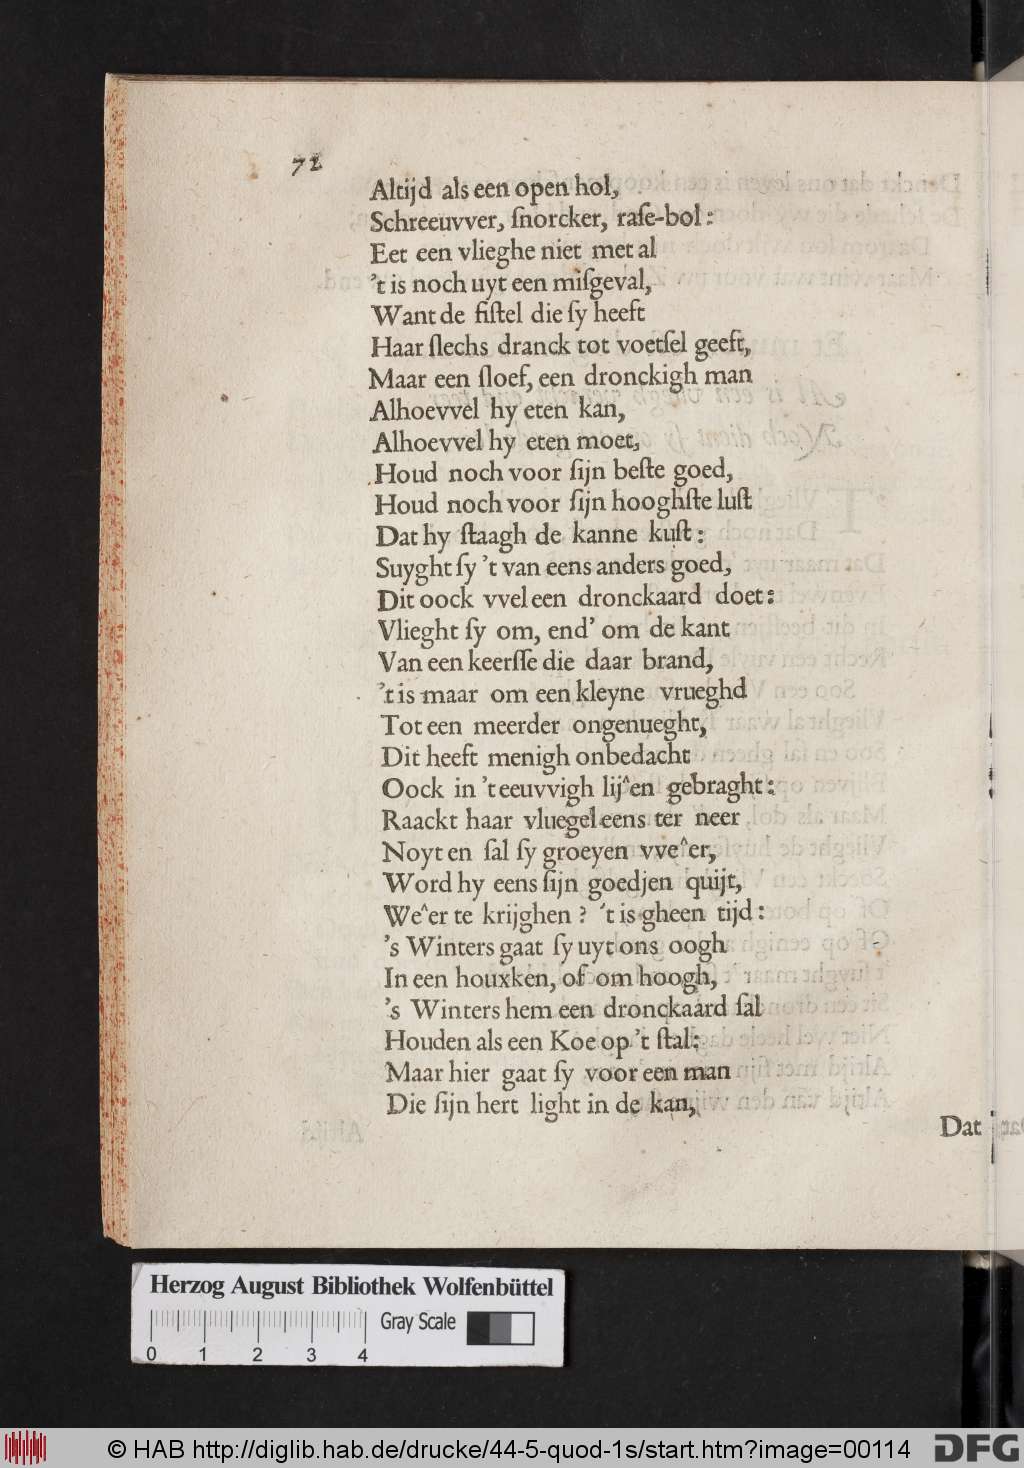 72
Altijd als een open hol,
Schreeuvver, ſnorcker, raſe-bol:
Eet een vlieghe niet met al
't is noch uyt een miſgeval,
Want de fiſtel die ſy heeft
Haar ſlechs dranck tot voetſel geeft,
Maar een ſloef, een dronckigh man
Alhoevvel hy eten kan,
Alhoevvel hy eten moet,
Houd noch voor ſijn beſte goed,
Houd noch voor ſijn hooghſte luſt
Dat hy ſtaagh de kanne kuſt:
Suyght ſy 't van eens anders goed,
Dit oock vvel een dronckaard doet:
Vlieght ſy om, end' om de kant
Van een keerſſe die daar brand,
't is maar om een kleyne vrueghd
Tot een meerder ongenueght,
Dit heeft menigh onbedacht
Oock in 't eeuvvigh lij^en gebraght:
Raackt haar vluegel eens ter neer
Noyt en ſal ſy groeyen vve^er,
Word hy eens ſijn goedjen quijt,
We^er te krijghen? 't is gheen tijd:
's Winters gaat ſy uyt ons oogh
In een houxken, of om hoogh,
's Winters hem een dronckaard ſal
Houden als een Koe op 't ſtal:
Maar hier gaat ſy voor een man
Die ſijn hert light in de kan,
Dat
Herzog August Bibliothek Wolfenbüttel
Gray Scale
0 1 2 3 4
© HAB http://diglib.hab.de/drucke/44-5-quod-1s/start.htm?image=00114
DFG